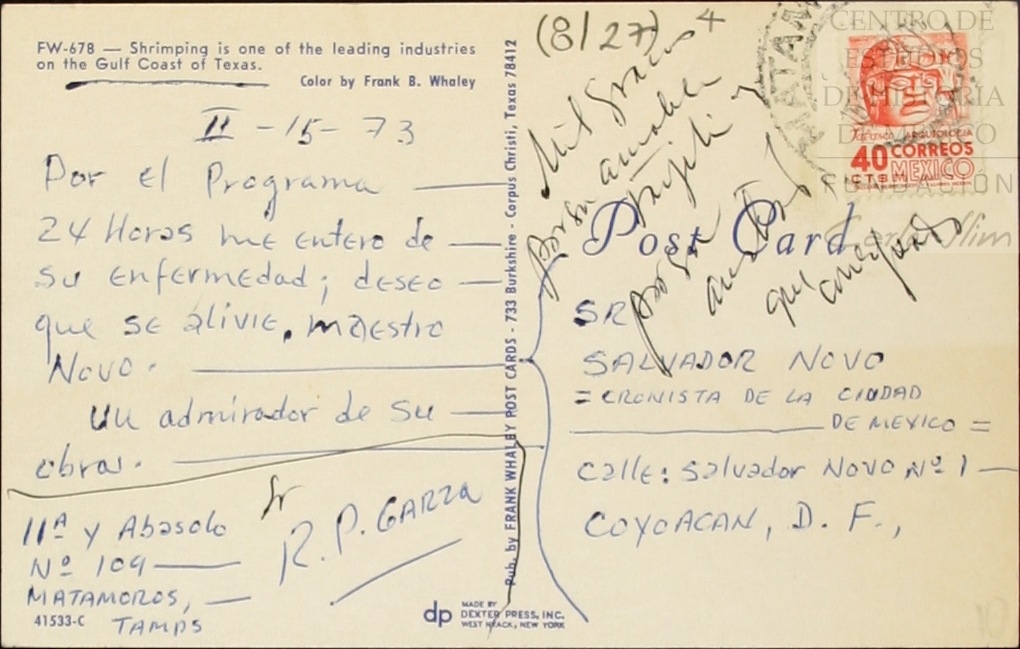 FW-678 — Shrimping is one of the leading industries
on the Gulf Coast of Texas.
Color by Frank B. Whaley
II - 15 - 73
Por el Programa
24 Horas me entero de
su enfermedad; deseo
que se alivie, maestro
Novo.
Un admirador de su
obra.
Sr
R. P. GARZA
11ª y Abasolo
Nº 109
MATAMOROS,
TAMPS
41533-C
Pub. by FRANK WHALEY POST CARDS - 733 Burkshire - Corpus Christi, Texas 78412
dp
MADE BY
DEXTER PRESS, INC.
WEST NYACK, NEW YORK
(8/27) 4
Mil gracias
por su amable
por su
que
Post Card
MATAM
Tabasco ARQUEOLOGIA
40 CORREOS
CTS MEXICO
SR
SALVADOR NOVO
= CRONISTA DE LA CIUDAD
DE MEXICO =
Calle: Salvador NOVO Nº 1
COYOACAN, D. F.,
CENTRO DE
ESTUDIOS
DE HISTORIA
DE MÉXICO
FUNDACIÓN
Carlos Slim